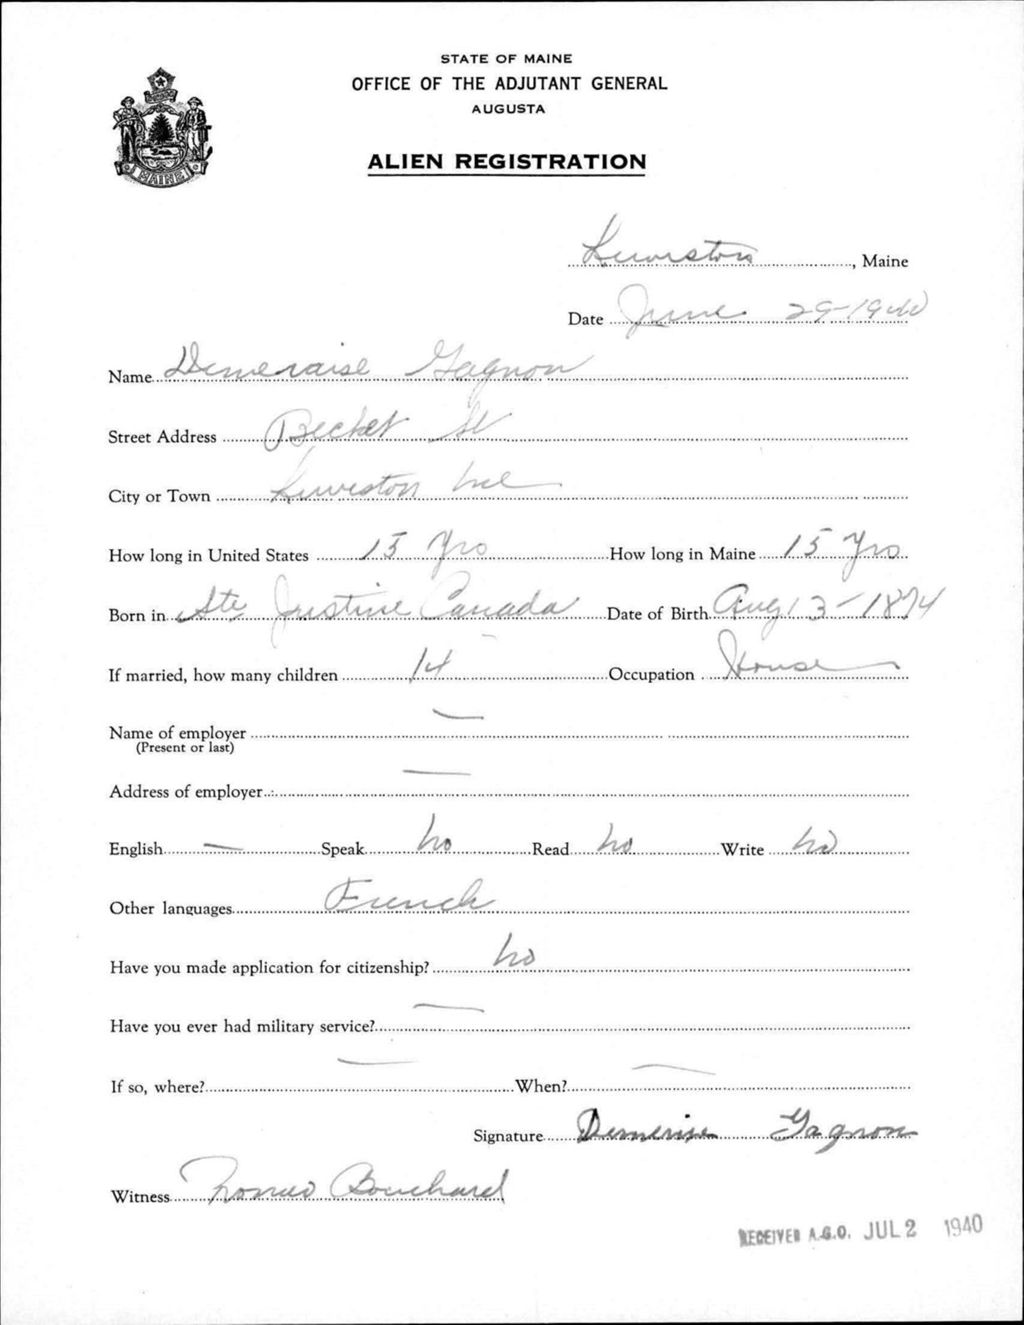 STATE OF MAINE
OFFICE OF THE ADJUTANT GENERAL
AUGUSTA
MAINE
ALIEN REGISTRATION
Lewiston, Maine
Date June 29-1940
Name Demeraise Gagnon
Street Address Becket St
City or Town Lewiston Me
How long in United States 15 Yrs How long in Maine 15 Yrs
Born in Ste Justine Canada Date of Birth Aug 13-1874
If married, how many children 14 Occupation House —
Name of employer —
(Present or last)
Address of employer —
English — Speak no Read no Write no
Other languages French
Have you made application for citizenship? no
Have you ever had military service? —
If so, where? — When? —
Signature Demerise Gagnon
Witness Romeo Bouchard
RECEIVED A.G.O. JUL 2 1940